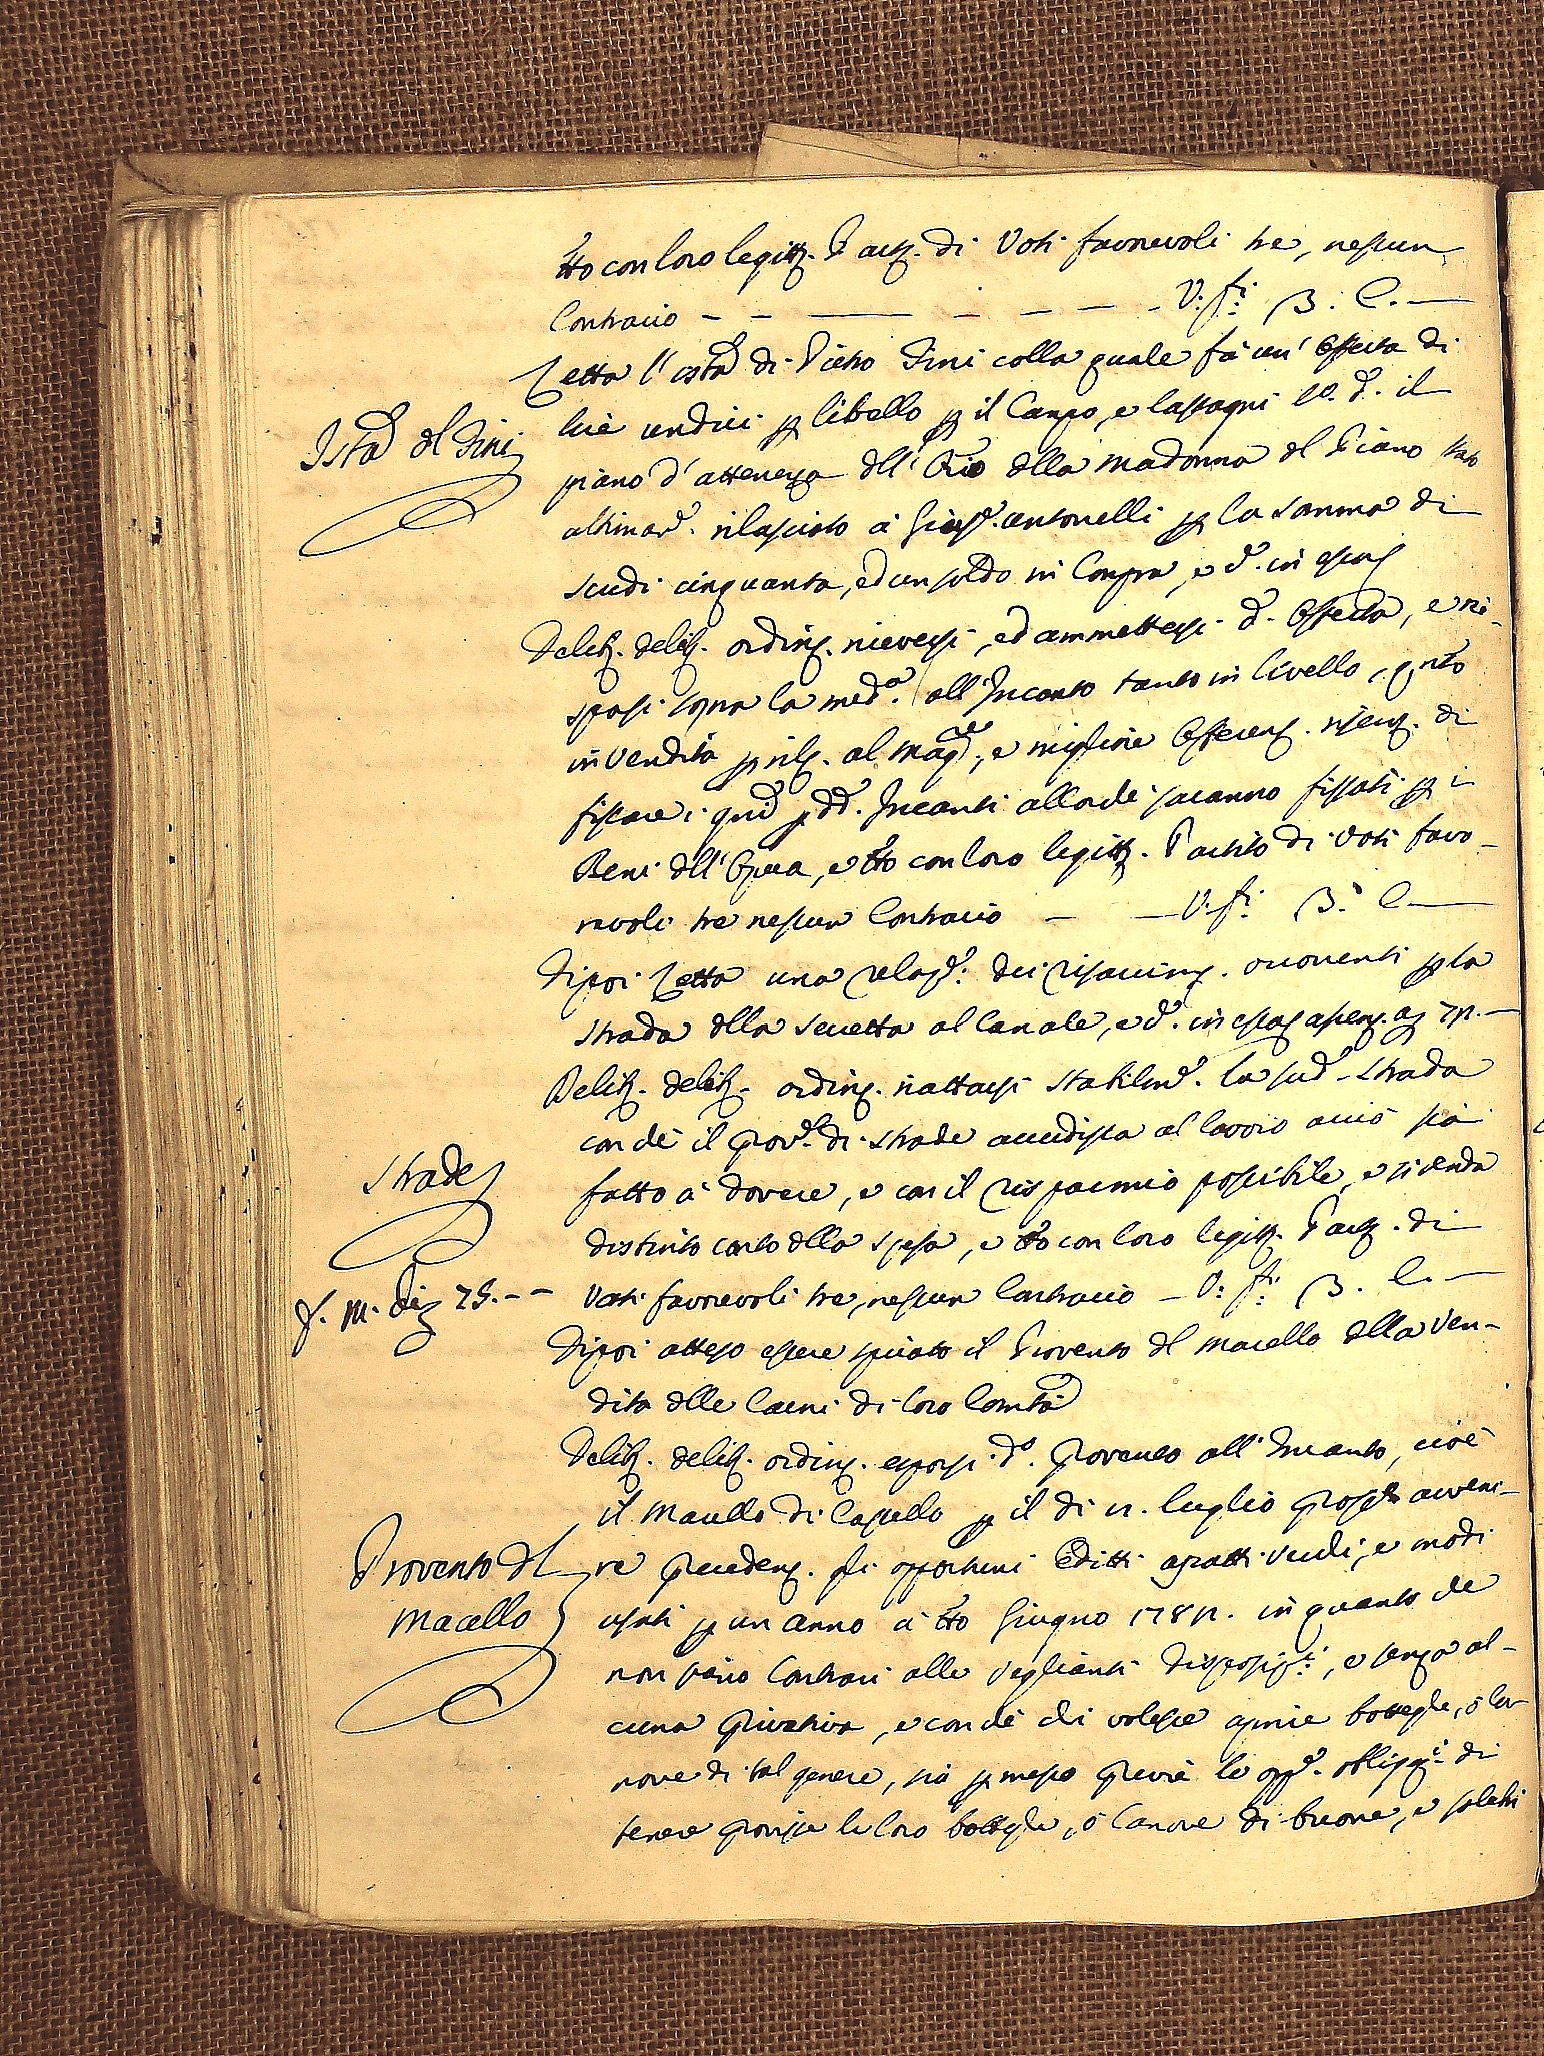 tto con loro legitt. Part. di Voti favorevoli tre, nessun
Contrario - - - - - - V. f.i 3. C.
Letta l'istã di Pietro Fini colla quale fà un' Offerta di
Istã del Fini
lire undici p libello p il Campo, e lastagni lo. d. il
piano d' attenenza dll' Orio della Madonna del Piano stato
ultimam.e rilasciato à Gius.e Antonelli p la somma di
scudi cinquanta, ed un soldo in Compra, e d. in essa
Delib. delib. ordin. riceversi, ed ammettersi d. Offerta, e ri-
sporsi sopra la med.a all' Incanto tanto in livello, q.nto
in vendita p ril. al mag.e, e migliore Offeren. riserv. di
fissare i quid p dd. Incanti allorchè saranno fissati p i
Beni dll' Opera, e tto con loro legitt. Partito di Voti favo-
revoli tre nessun Contrario - - V. f.i 3. C.
Dipoi Letta una relaz.e dei risarcim. occorrenti p la
strada della Scuetta al Canale, e d. in essa
Delib. delib. ordin. riattarsi stabilm.e la sud.a strada
con chè il Prov.e di strade accudisca al lavoro acciò sia
Strade
fatto à dovere, e con il risparmio possibile, e si renda
distinto conto della spesa, e tto con loro legitt. Part. di
Voti favorevoli tre, nessun Contrario - V. f.i 3. C.
Dipoi atteso essere spirato il Provento del Macello della Ven-
dita delle Carni di loro Comtà
Delib. delib. ordin. esporsi d.o Provento all' Incanto, cioè
il Macello di Castello p il di 12. luglio pross.o avveni-
Provento del
Macello
re preceden. gli opportuni Editti a gratti Verdi, e modi
usati p un anno à tto Giugno 1782. in quanto che
non siano Contrari alle Veglianti disposiz.i, e senza al-
cuna Privativa, e con chè chi volesse aprire botteghe, ò Ca-
nove di tal genere, sia p messo previe le opp.e obbligaz.i di
tenere provviste le loro botteghe, ò Canove di buone, e